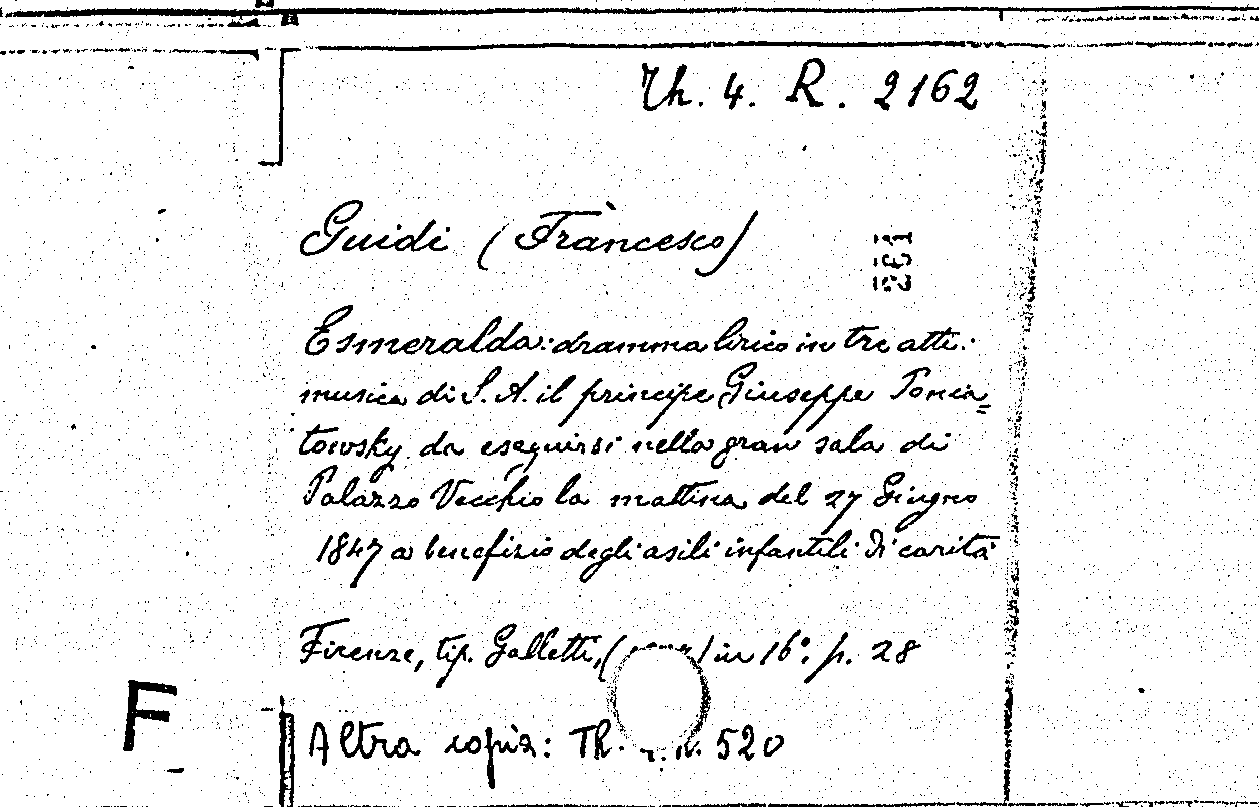 Th. 4. R. 2162
Guidi (Francesco)
281
Esmeralda: dramma lirico in tre atti:
musica di S. A. il principe Giuseppe Ponia=
towsky da eseguirsi nella gran sala di
Palazzo Vecchio la mattina del 27 Giugno
1847 a benefizio degli asili infantili di carità
Firenze, tip. Galletti, ( ) in 16°. p. 28
F
Altra copia: Th. R. 520